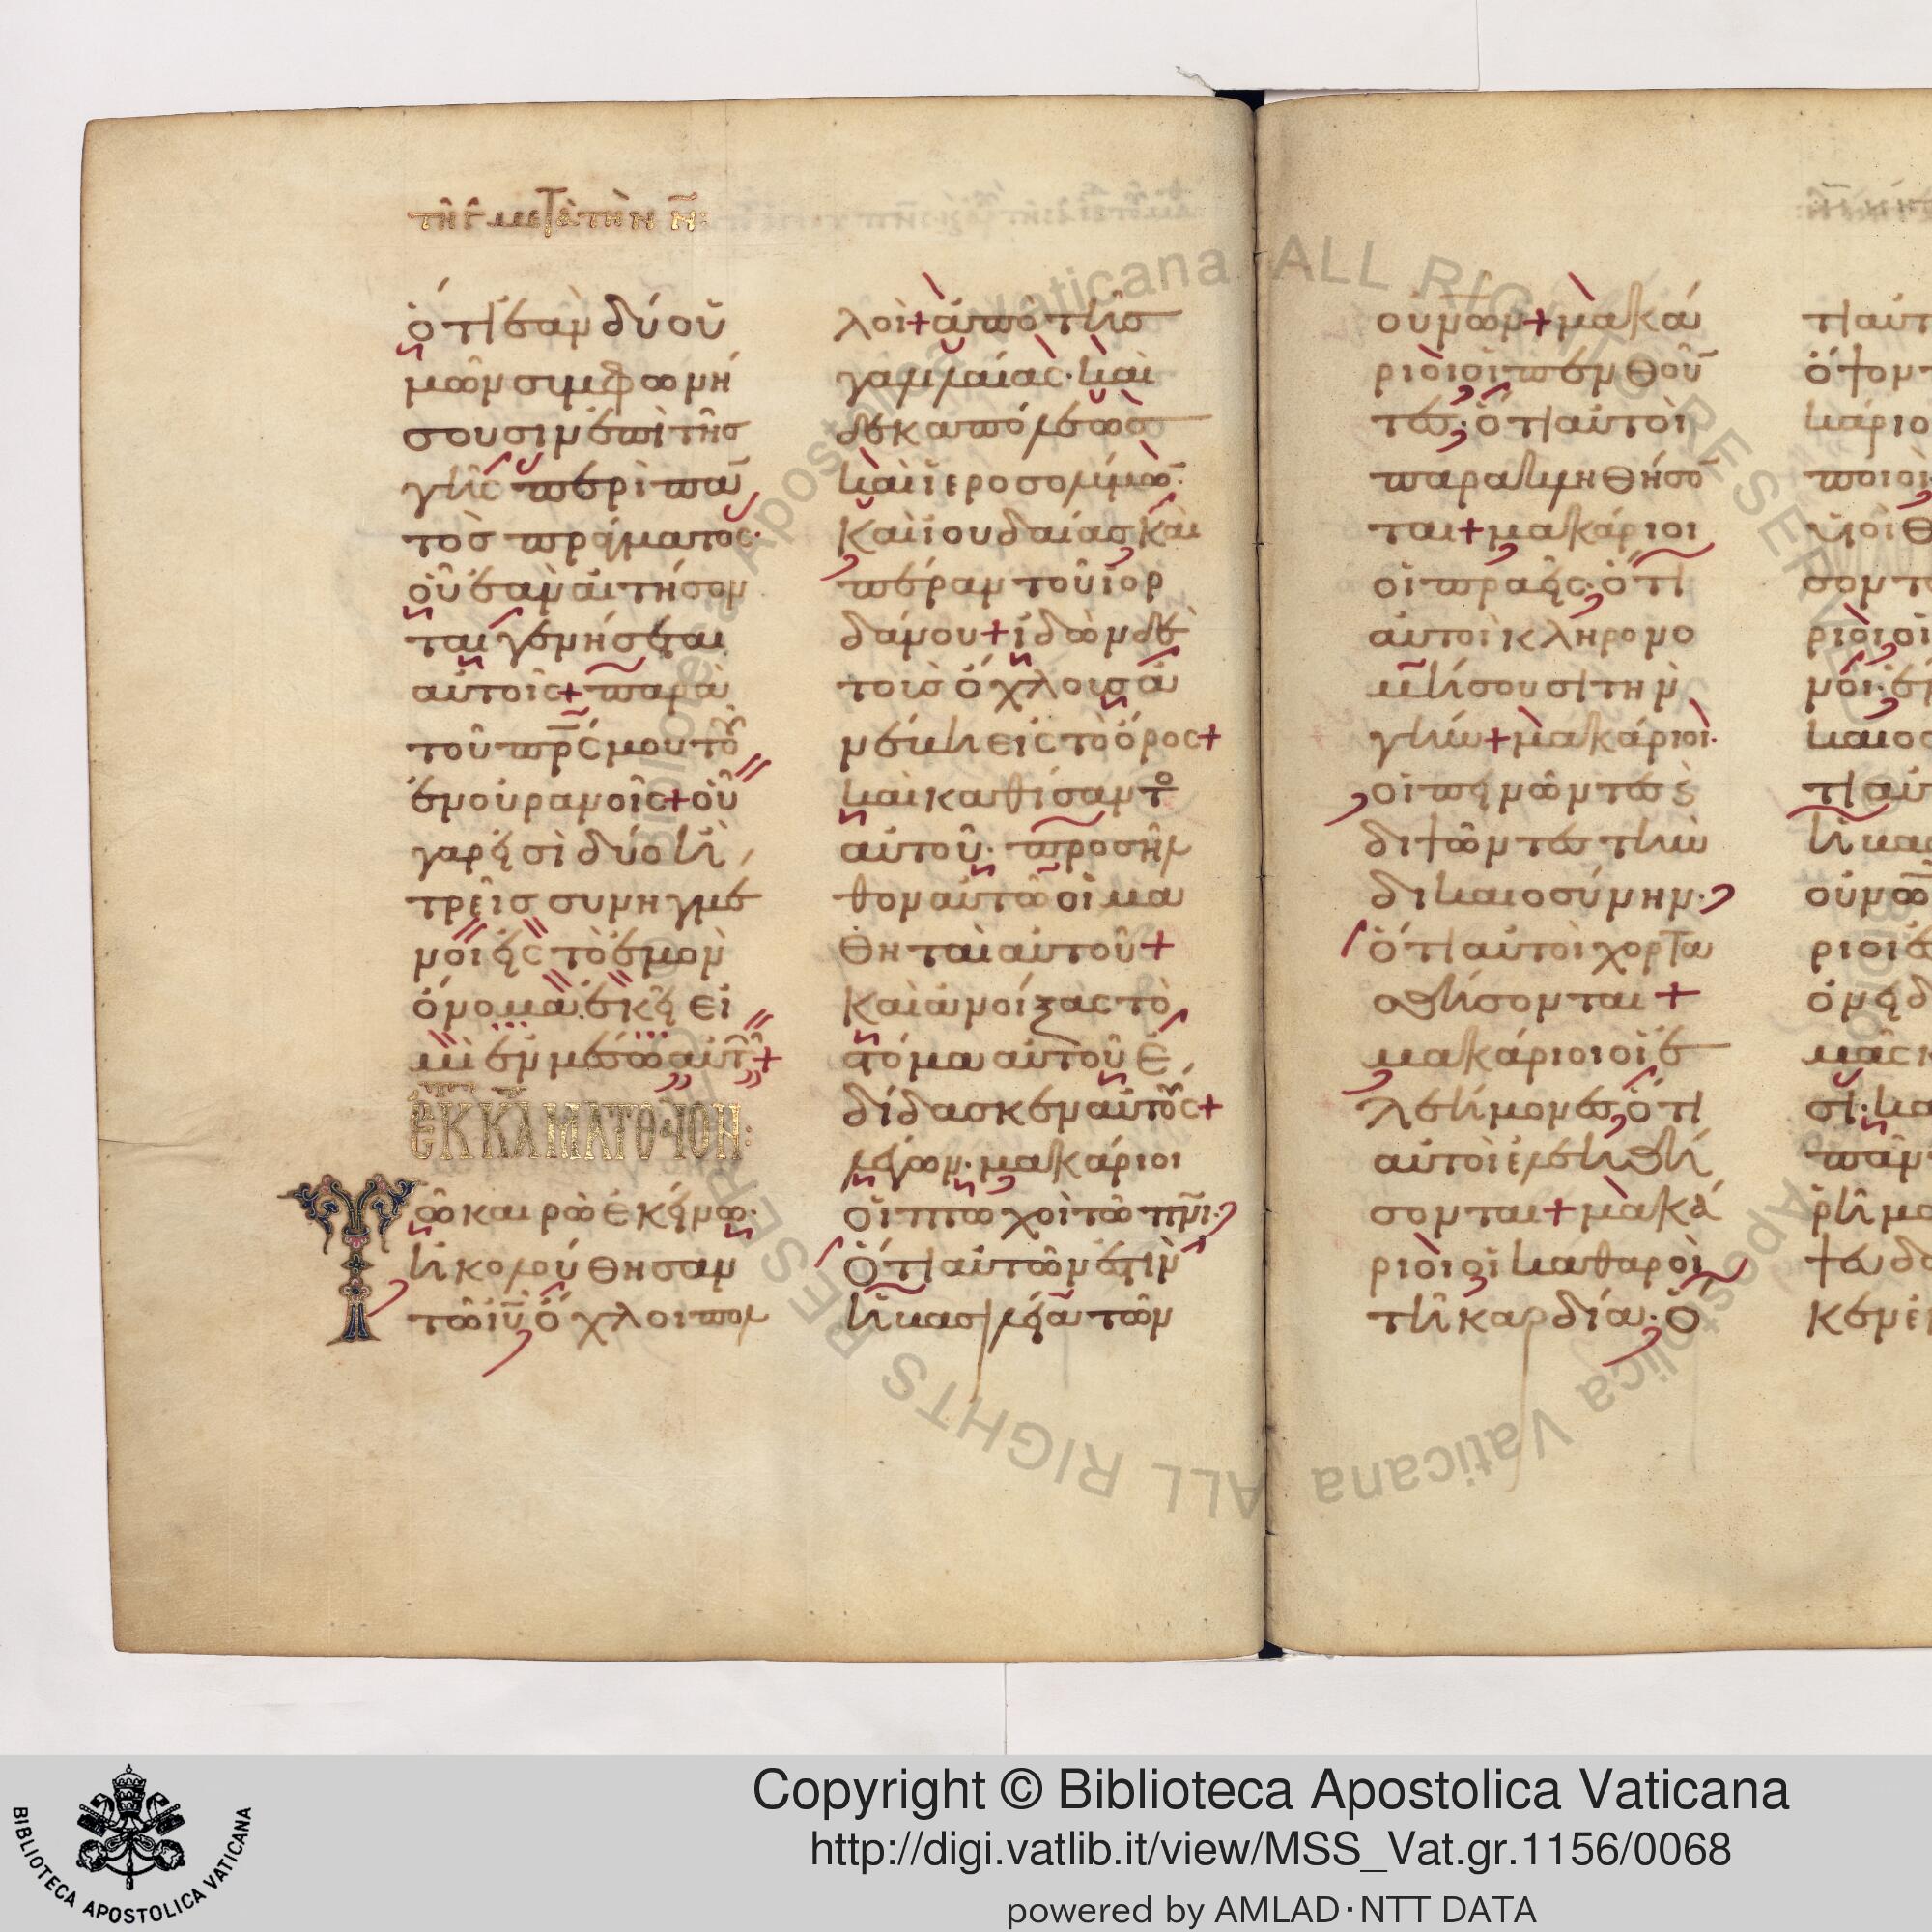 τῆ γ̄ μετὰ τὴν ν̄:
ὅτι ἐὰν δύο ὑ
μῶν συμφωνή
σουσιν ἐπὶ τῆς
γῆς περὶ παν̄
τὸς πράγματος·
οὗ ἐὰν αἰτήσον
ται γενήσεται
αὐτοῖς + παρὰ
τοῦ πρ̅ς μου τοῦ
ἐν οὐρανοῖς + οὗ
γάρ εἰσι δύο ἢ
τρεῖς συνηγμέ
νοι εἰς τὸ ἐμὸν
ὄνομα. ἐκεῖ εἰ
μὶ ἐν μέσω αὐτῶν +
ἐκ κατὰ ματθαῖον:
Τῶ καιρῶ ἐκείνω·
ἠκολούθησαν
τῶ ιυ̅ ὄχλοι πολ
λοὶ + ἀπὸ τῆς
γαλιλαίας· καὶ
δεκαπόλεως
καὶ ἱεροσολύμω̄·
καὶ ἰουδαίας καὶ
πέραν τοῦ ἰορ
δάνου + ἰδὼν δὲ
τοὺς ὄχλους ἀ
νέβη εἰς τὸ ὄρος +
καὶ καθίσαντο
αὐτοῦ· προσῆλ
θον αὐτῶ οἱ μα
θηταὶ αὐτοῦ +
καὶ ἀνοίξας τὸ
στόμα αὐτοῦ ἐ
δίδασκεν αὐτοὺς +
λέγων· μακάριοι
οἱ πτωχοὶ τῶ πν̅ι·
ὅτι αὐτῶν ἐστιν
ἡ βασιλεία τῶν
ου̅νω̅ν + μακά
ριοι οἱ πενθοῦν̄
τες· ὅτι αὐτοὶ
παρακληθήσον̄
ται + μακάριοι
οἱ πραεῖς· ὅτι
αὐτοὶ κληρονο
μήσουσι τὴν
γῆν + μακάριοι·
οἱ πεινῶντες ϗ
διψῶντες τὴν
δικαιοσύνην·
ὅτι αὐτοὶ χορτα
σθήσονται +
μακάριοι οἱ ἐ
λεήμονες· ὅτι
αὐτοὶ ἐλεηθή
σονται + μακά
ριοι οἱ καθαροὶ
τῆ καρδία· ὅ
Copyright © Biblioteca Apostolica Vaticana
http://digi.vatlib.it/view/MSS_Vat.gr.1156/0068
powered by AMLAD·NTT DATA
BIBLIOTECA APOSTOLICA VATICANA
Biblioteca Apostolica Vaticana ALL RIGHTS RESERVED
Biblioteca Apostolica Vaticana ALL RIGHTS RESERVED